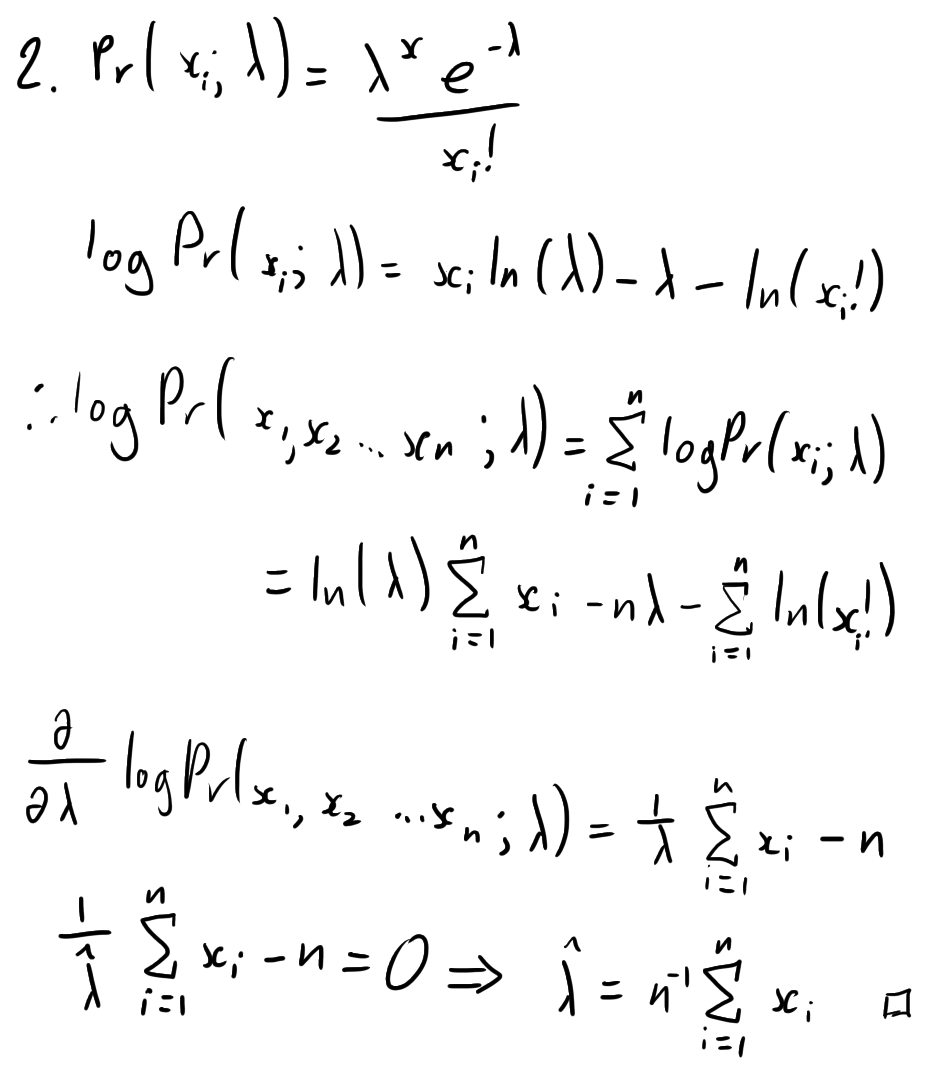 2. Pr(x_i; λ) = λ^x e^{-λ} / x_i!
log Pr(x_i; λ) = x_i ln(λ) - λ - ln(x_i!)
∴ log Pr(x_1, x_2 ... x_n; λ) = ∑_{i=1}^{n} log Pr(x_i; λ)
= ln(λ) ∑_{i=1}^{n} x_i - nλ - ∑_{i=1}^{n} ln(x_i!)
∂/∂λ log Pr(x_1, x_2 ... x_n; λ) = 1/λ ∑_{i=1}^{n} x_i - n
1/λ̂ ∑_{i=1}^{n} x_i - n = 0 ⇒ λ̂ = n^{-1} ∑_{i=1}^{n} x_i □